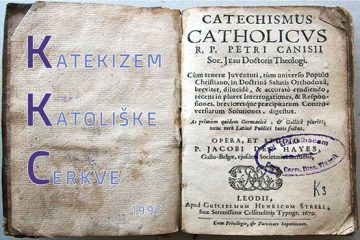 KATEKIZEM
KATOLIŠKE
CERKVE
1997
CATECHISMUS
CATHOLICVS
R. P. PETRI CANISII
Soc. JESU Doctoris Theologi.
Cùm teneræ Juventuti, tùm universo Populo
Christiano, in Doctrinâ Salutis Orthodoxâ,
breviter, dilucidè, & accuratè erudiendo,
recens in plures Interrogationes, & Responsiones,
versiarum Solutiones, digestus.
Ac primùm quidem Germanicè, & Gallicè
nunc verò Latinè Publici Iuris factus.
OPERA, ET STUDIO
P. JACOBI DES HAYES,
Gallo-Belgæ, ejusdem Societatis
K3
LEODII,
Apud GUILIELMUM HENRICUM STREEL,
Suæ Serenissimæ Celsitudinis Typogr. 1679.
Cum Privilegio, & Facultate Superiorum.